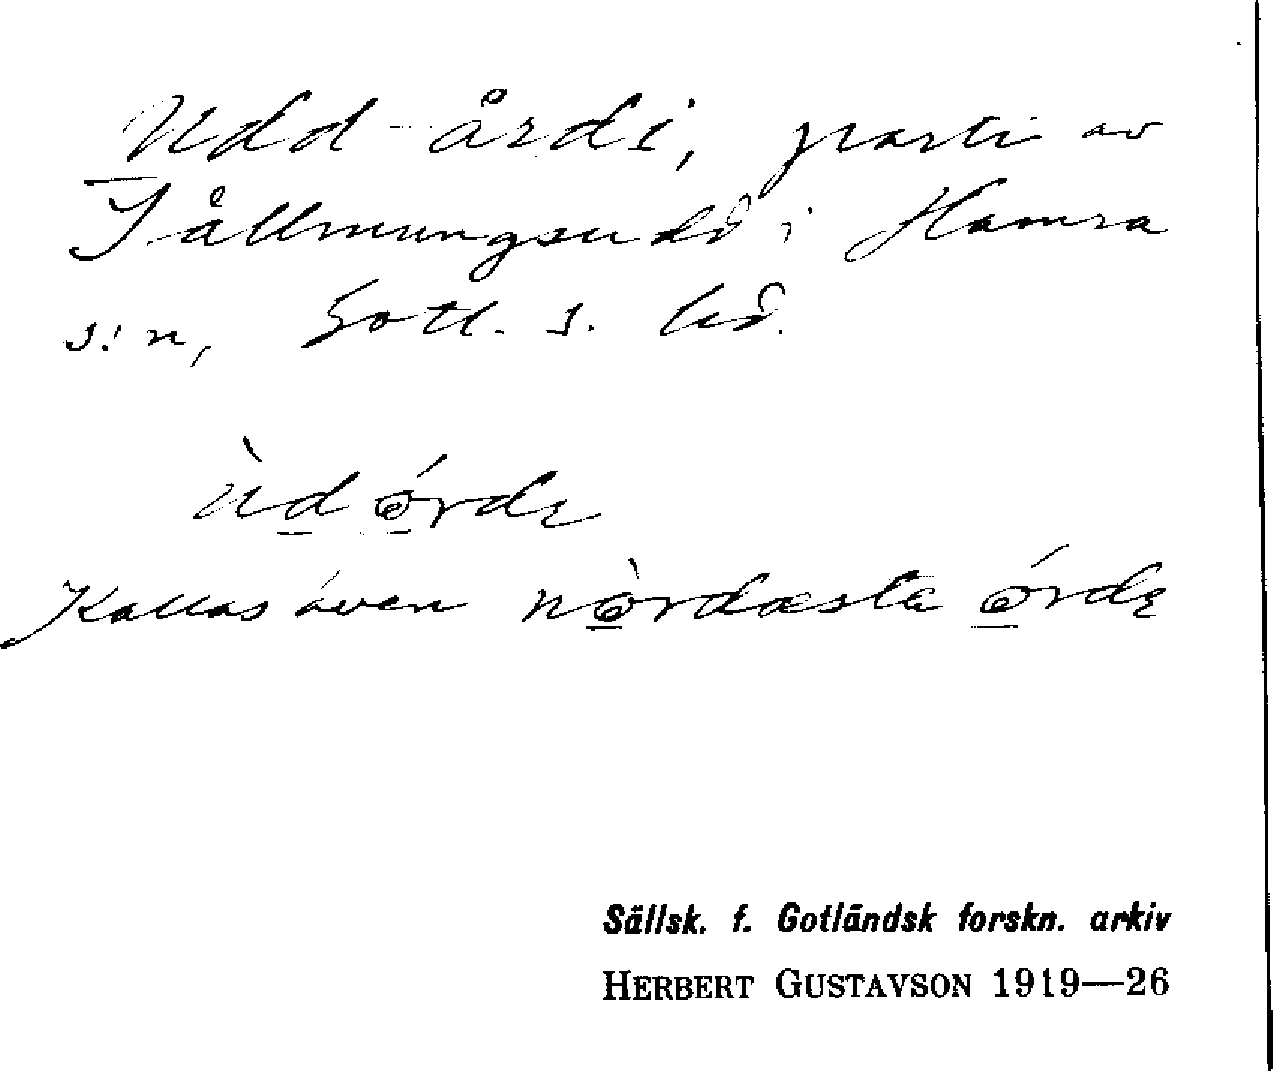 Udd-årdi, parti av
Tällmungsudd i Hamra
s:n, Gotl. s. hd.
ùd órde
Kallas även nòrdæsta órde
Sällsk. f. Gotländsk forskn. arkiv
HERBERT GUSTAVSON 1919—26